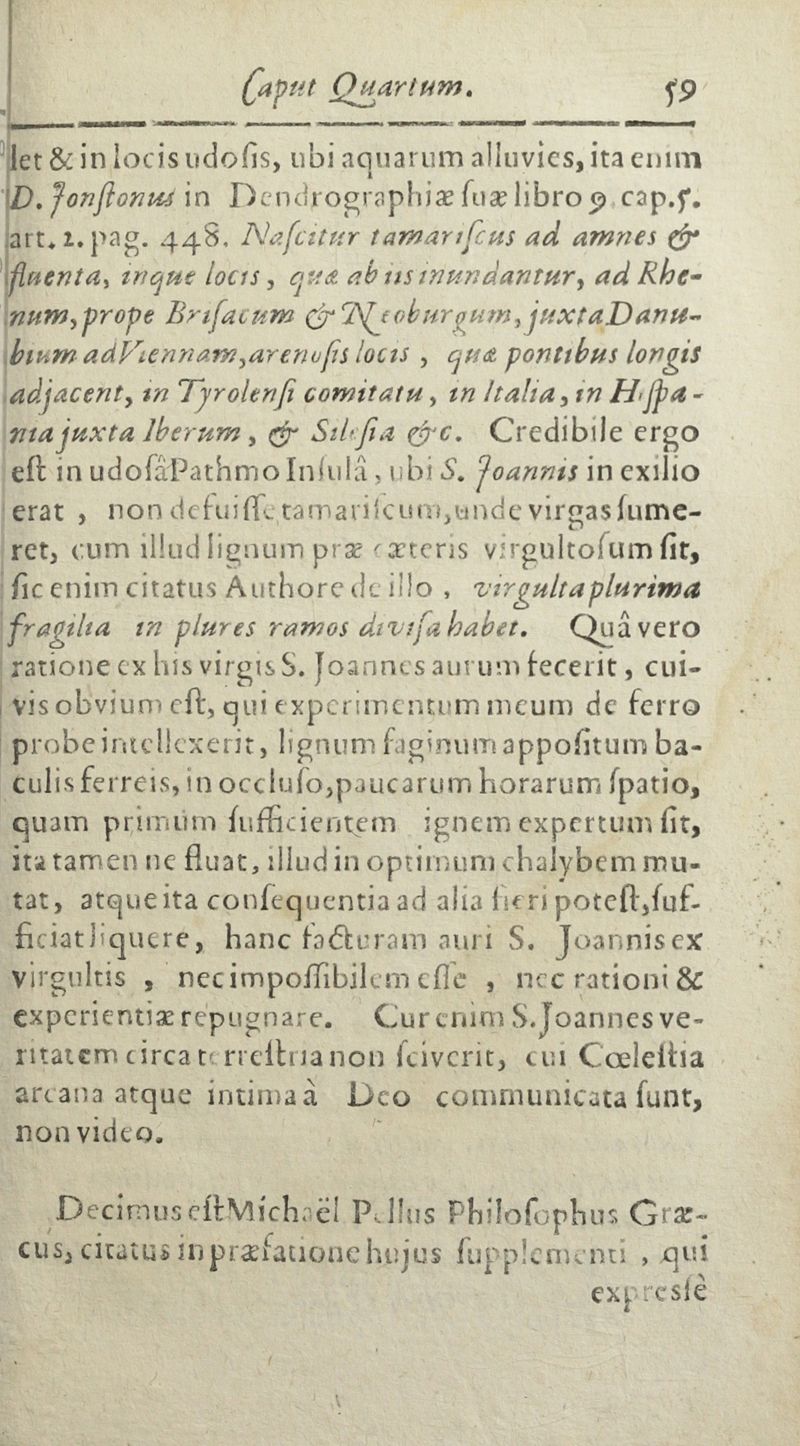 Caput Quartum. 59
let & in locis udoſis, ubi aquarum alluvies, ita enim
D. Jonſtonus in Dendrographiæ ſuæ libro 9. cap. 5.
art. 1. pag. 448. Naſcitur tamariſcus ad amnes &
fluenta, inque locis, quæ ab iis inundantur, ad Rhe-
num, prope Briſacum & Neoburgum, juxta Danu-
bium ad Viennam, arenoſis locis, quæ pontibus longis
adjacent, in Tyrolenſi comitatu, in Italia, in Hiſpa-
nia juxta Iberum, & Sileſia &c. Credibile ergo
eſt in udoſâ Pathmo Inſulâ, ubi S. Joannis in exilio
erat, non defuiſſe tamariſcum, unde virgas ſume-
ret, cum illud lignum præ cæteris virgultoſum ſit,
ſic enim citatus Authore de illo, virgulta plurima
fragilia in plures ramos diviſa habet. Quâ vero
ratione ex his virgis S. Joannes aurum fecerit, cui-
vis obvium eſt, qui experimentum meum de ferro
probe intellexerit, lignum faginum appoſitum ba-
culis ferreis, in occluſo, paucarum horarum ſpatio,
quam primùm ſufficientem ignem expertum ſit,
ita tamen ne fluat, illud in optimum chalybem mu-
tat, atque ita conſequentia ad alia fieri poteſt, ſuf-
ficiat liquere, hanc facturam auri S. Joannis ex
virgultis, nec impoſſibilem eſſe, nec rationi &
experientiæ repugnare. Cur enim S. Joannes ve-
ritatem circa terreſtria non ſciverit, cui Cœleſtia
arcana atque intima à Deo communicata ſunt,
non video.
Decimus eſt Michaël Pſellus Philoſophus Græ-
cus, citatus in præfatione hujus ſupplementi, qui
expresſè